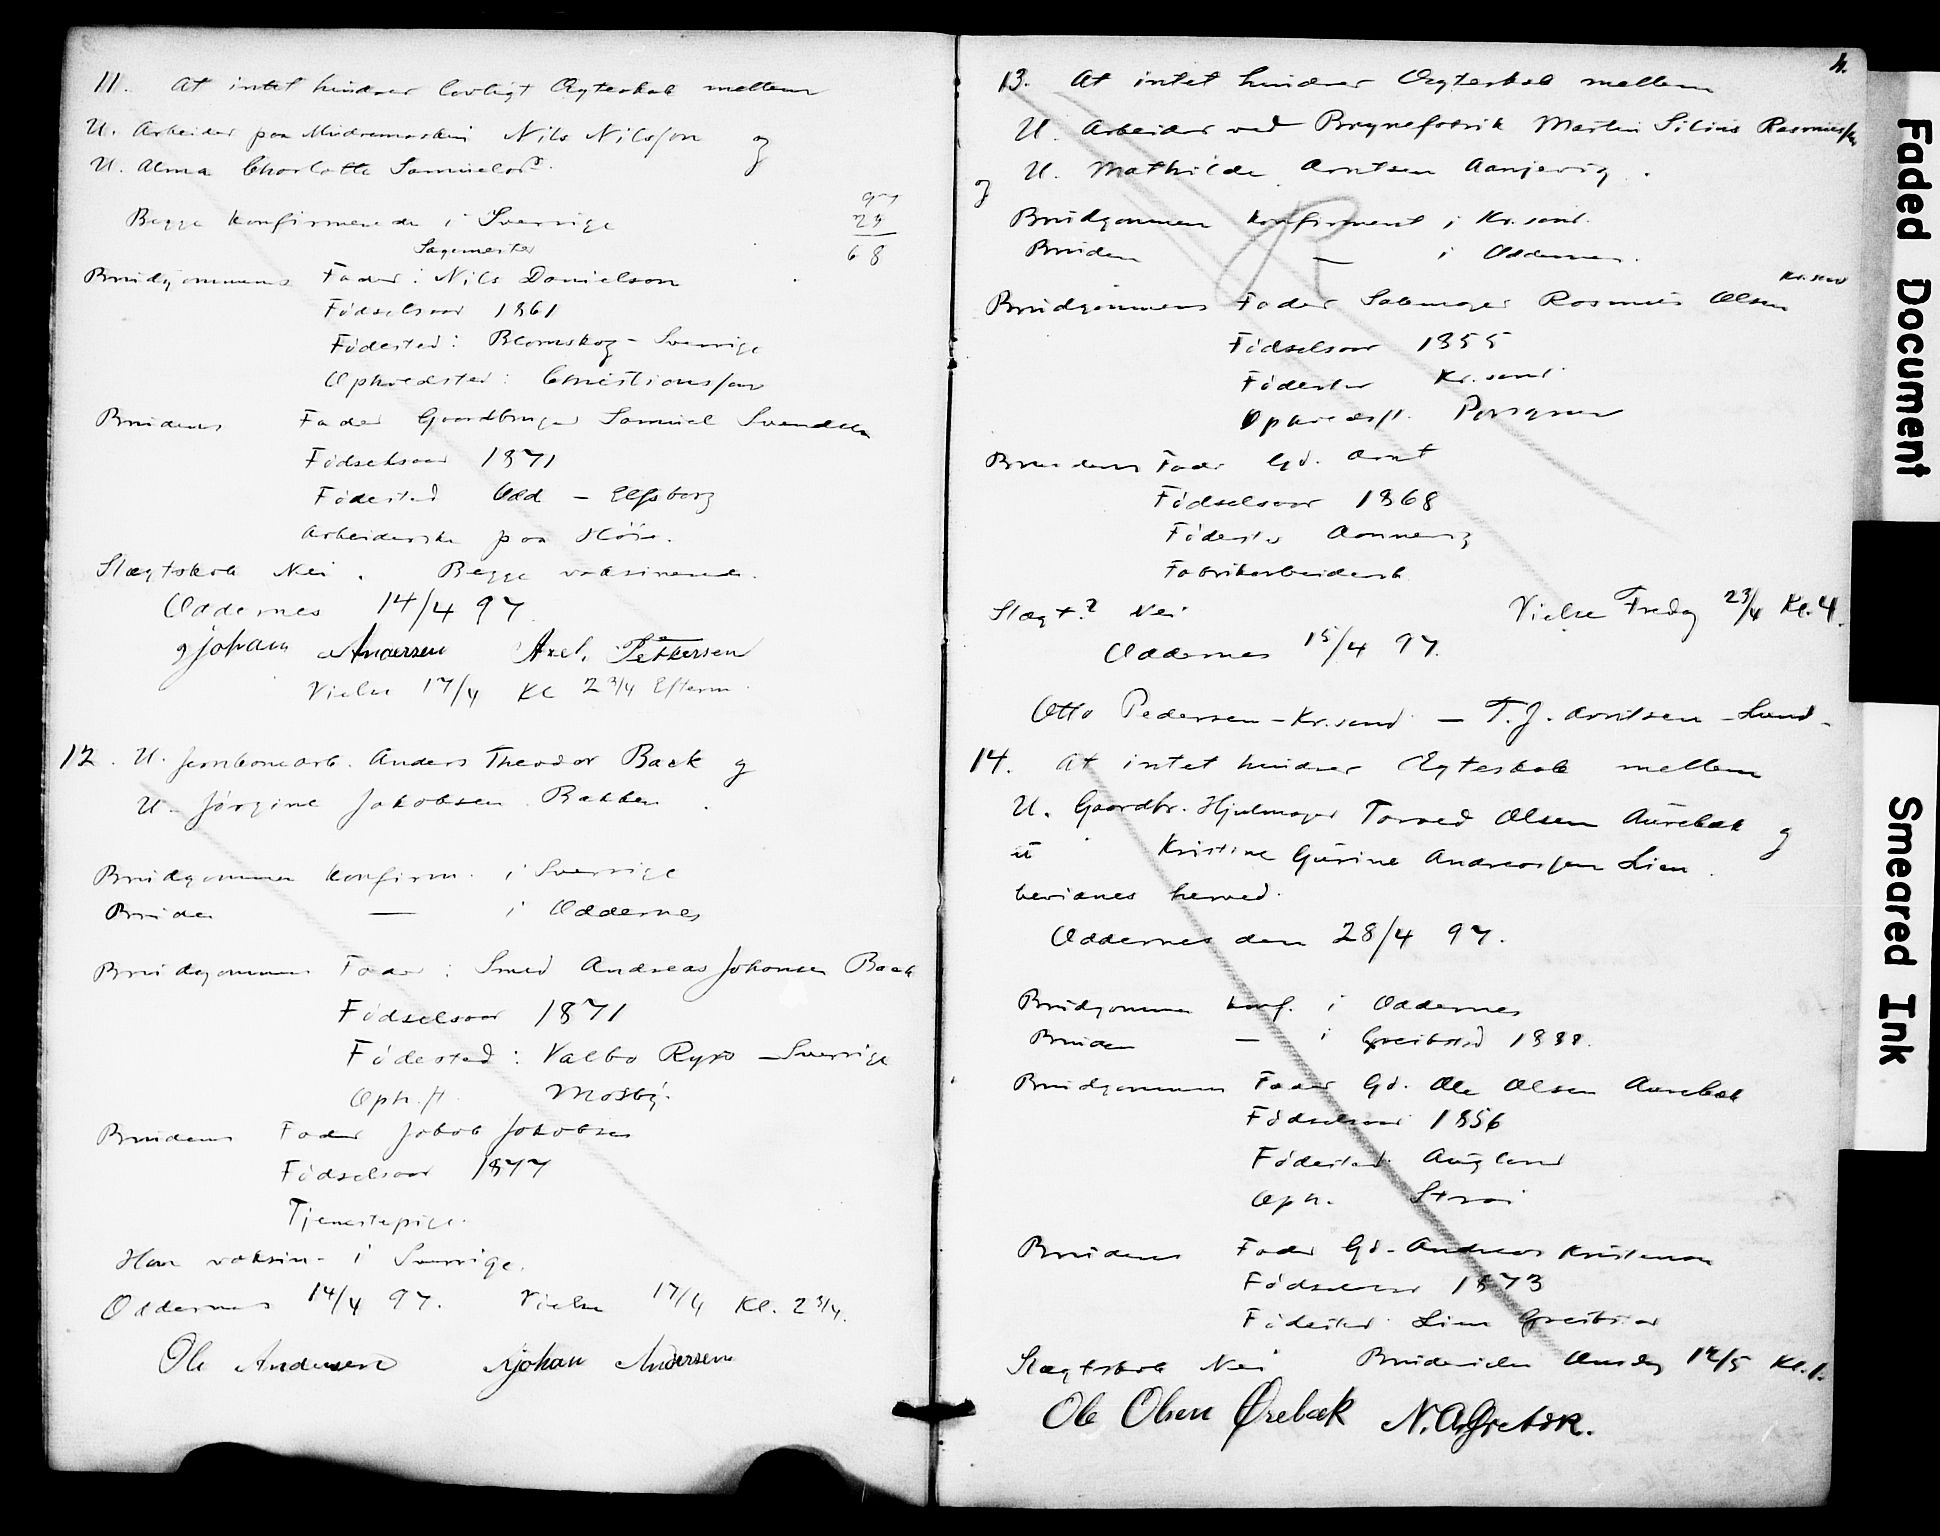 11. At intet hindrer lovligt Ægteskab mellem
U. Arbeider paa Mudremaskin Nils Nilsson og
U. Alma Charlotte Samuelsd.
97
29
68
Begge konfirmerede i Sverrige
Sagmester
Brudgommens Fader: Nils Danielson
Fødselsaar 1861
Fødested: Blomskog - Sverrige
Opholdsted: Christianssan
Brudens Fader Gaardbruger Samuel Svendsen
Fødselsaar 1871
Fødested Odd - Elfsborg
Arbeiderske paa
Slægtskab Nei. Begge vaksinerede.
Oddernes 14/4 97
Johan Andersen Axel. Pettersen
Vielse 17/4 Kl 2 3/4 Efterm.
12. U. Jernbanearb. Anders Theodor Back og
U. Jørgine Jakobsen Bakken.
Brudgommen konfirm. i Sverrige
Bruden — i Oddernes
Brudgommens Fader: Smed Andreas Johansen Back
Fødselsaar 1871
Fødested: Valbo Ryrs - Sverrige
Oph.st. Mosby.
Brudens Fader Jakob Jakobsen
Fødselsaar 1877
Tjenestepige.
Han vaksin. i Sverrige.
Oddernes 14/4 97. Vielse 17/4 Kl. 2 3/4.
Ole Andersen Johan Andersen
4.
13. At intet hindrer Ægteskab mellem
U. Arbeider ved Brynefabrik Martin Silius Rasmussen
og U. Mathilde Arntsen Aanjevig.
Brudgommen konfirmeret i Kr.sand.
Bruden — i Oddernes.
Kr.sand
Brudgommens Fader Rasmus Olsen
Fødselsaar 1855
Fødested Kr.sand
Opholdsst. Porsgrun
Brudens Fader Gd. Arnt
Fødselsaar 1868
Fødested
Fabrikarbeidersk
Slægt.? Nei Vielse Fredag 23/4 Kl. 4.
Oddernes 15/4 97.
Otto Pedersen - Kr.sand - T. J. Arntsen - Lund -
14. At intet hindrer Ægteskab mellem
U. Gaardbr. Hjulmager Tarved Olsen Aurebæk og
U Kristine Gurine Andreassen Lien
bevidnes herved.
Oddernes den 28/4 97.
Brudgommen konf. i Oddernes
Bruden — i Greibstad 1888.
Brudgommens Fader Gd. Ole Olsen Aurebæk
Fødselsaar 1856
Fødested Augland
Oph. Strai
Brudens Fader Gd. Andreas Kristensen
Fødselsaar 1873
Fødested Lien Greibstad
Slægtskab Nei Brudevielse Onsdag 12/5 Kl. 1.
Ole Olsen Ørebæk N. A. Ørebæk.
Faded Document
Smeared Ink